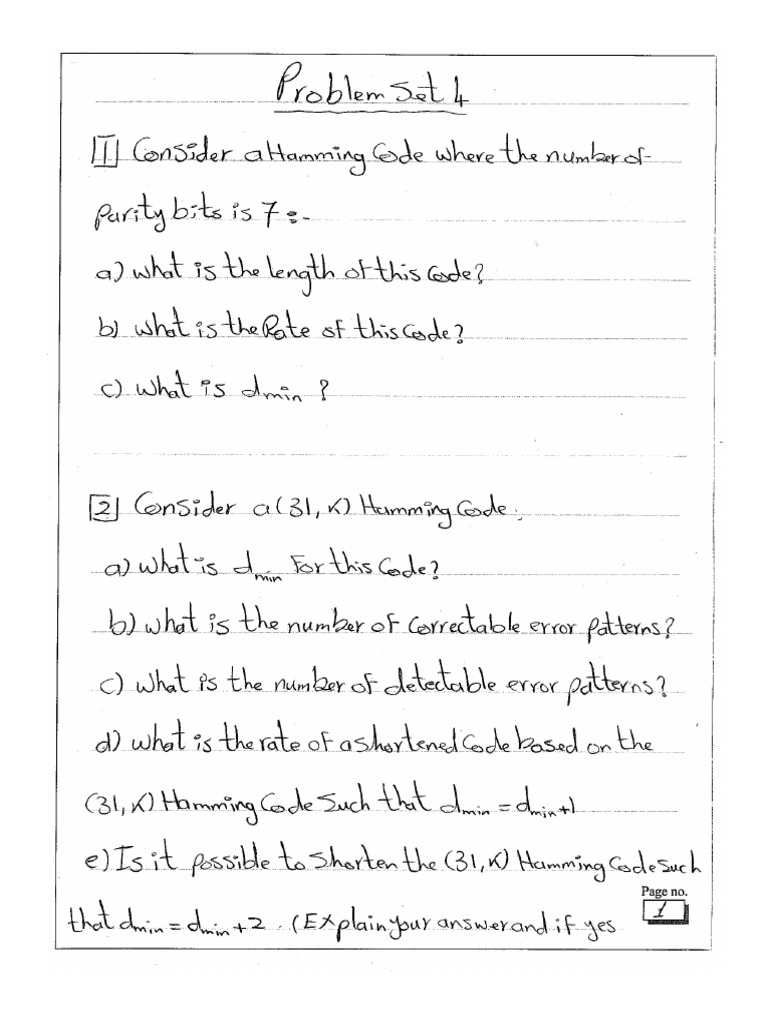 Problem Set 4
1 Consider a Hamming Code where the number of
parity bits is 7 :-
a) what is the length of this code?
b) what is the Rate of this code?
c) what is dmin ?
2 Consider a (31, K) Hamming Code.
a) what is dmin For this Code?
b) what is the number of correctable error patterns?
c) what is the number of detectable error patterns?
d) what is the rate of a shortened Code based on the
(31, K) Hamming Code Such that dmin = dmin+1
e) Is it possible to shorten the (31, K) Hamming Code such
Page no.
1
that dmin = dmin + 2 . (Explain your answer and if yes